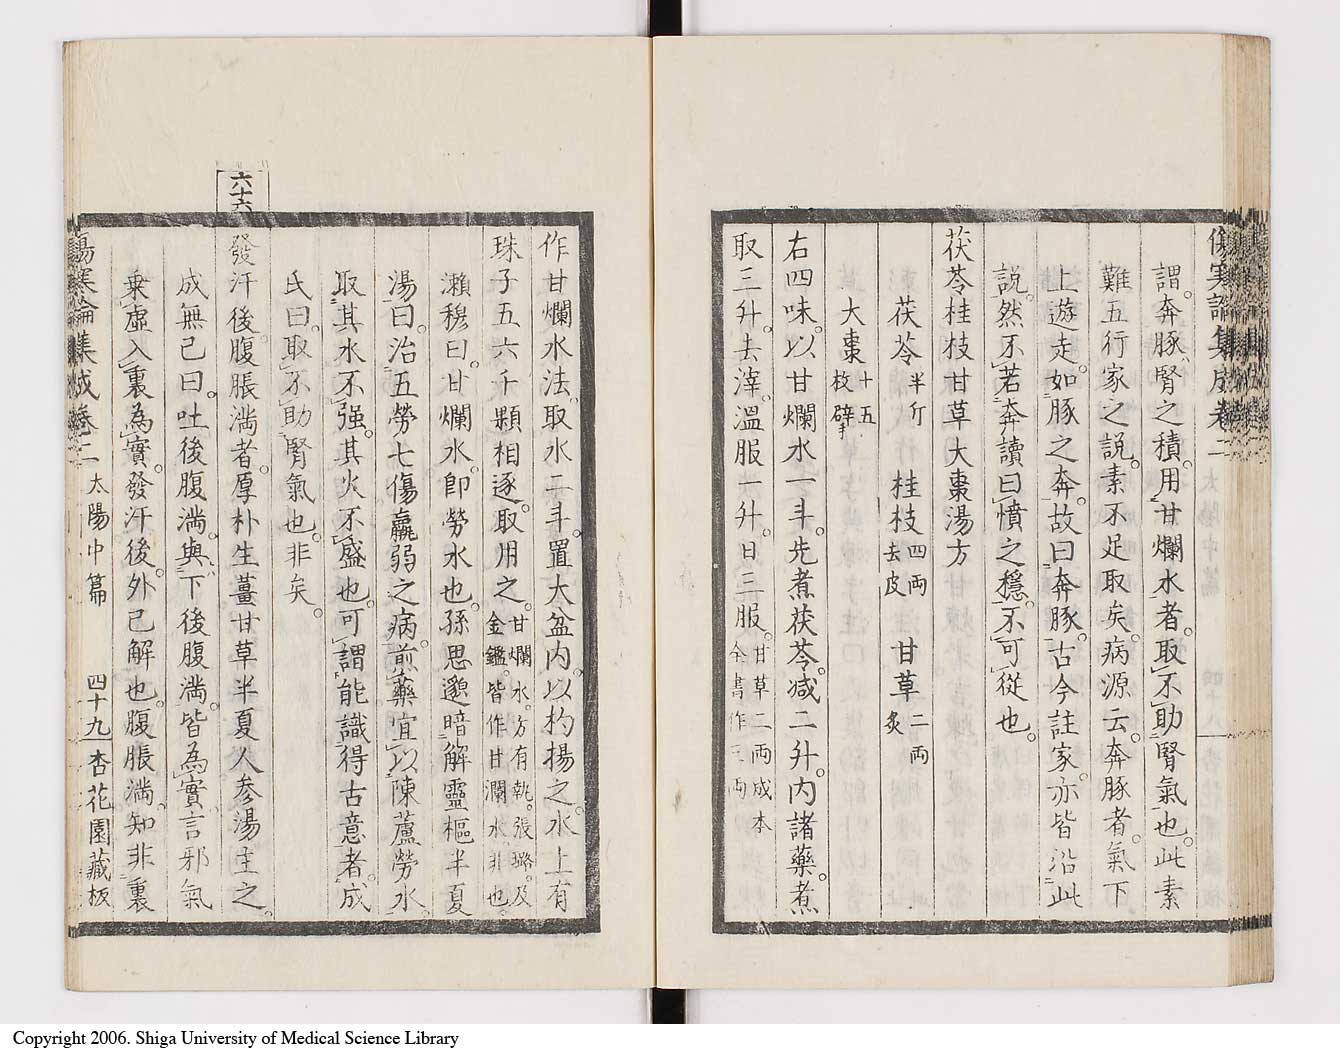 傷寒論集成卷二
謂奔豚腎之積。用甘爛水者。取不助腎氣也。此素
難五行家之說。素不足取矣。病源云。奔豚者。氣下
上遊走。如豚之奔。故曰奔豚。古今註家。亦皆沿此
說。然不若奔讀曰憤之穩。不可從也。
茯苓桂枝甘草大棗湯方
茯苓半斤 桂枝四両去皮 甘草二両炙
大棗十五枚擘
右四味。以甘爛水一斗。先煮茯苓。減二升。內諸藥。煮
取三升。去滓。溫服一升。日三服。甘草二両成本全書作三両
作甘爛水法。取水二斗。置大盆內。以杓揚之。水上有
珠子五六千顆相逐。取用之。甘爛水。方有執。張璐。及金鑑。皆作甘瀾水。非也。
瀨穆曰。甘爛水。即勞水也。孫思邈暗解靈樞半夏
湯曰。治五勞七傷羸弱之病。煎藥宜以陳蘆勞水。
取其水不強。其火不盛也。可謂能識得古意者。成
氏曰。取不助腎氣也。非矣。
六十六
發汗後。腹脹滿者。厚朴生薑甘草半夏人參湯主之。
成無已曰。吐後腹滿。與下後腹滿。皆為實。言邪氣
乗虛入裏為實。發汗後。外已解也。腹脹滿。知非裏
傷寒論集成卷二 太陽中篇 四十九 杏花園藏板
Copyright 2006. Shiga University of Medical Science Library